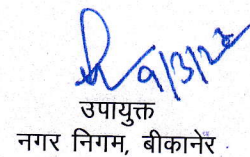 9/3/23
उपायुक्त
नगर निगम, बीकानेर